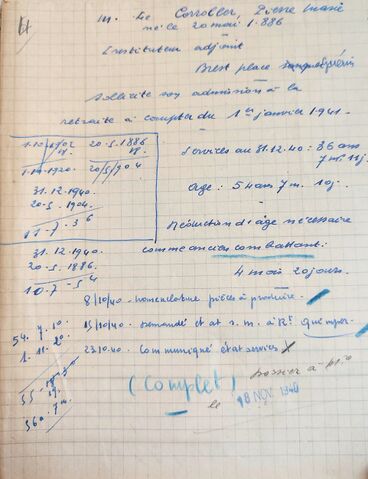 M. Le Corroller, Pierre Marie
né le 20 mai 1.886
Instituteur adjoint
Brest place
Sollicite son admission à la
retraite à compter du 1er janvier 1.941.
20-5-1886
1-10-1920. 20/5/904
31.12.1940.
20-5-1904.
11-7-36
Services au 31.12.40: 36 ans
7 m. 11 j.
Age: 54 ans 7 m. 10 j.
Réduction d'âge nécessaire
comme ancien combattant:
4 mois 20 jours.
31.12.1940.
20-5-1886.
10-7-54
8/10/40 - nomenclature pièces à produire.
15/10/40 - Demandé et at s. m. à Rt
23.10.40. Communiqué état services
54. 7. 10.
1. 11. 20.
(Complet)
dossier à
le 18 NOV. 1940